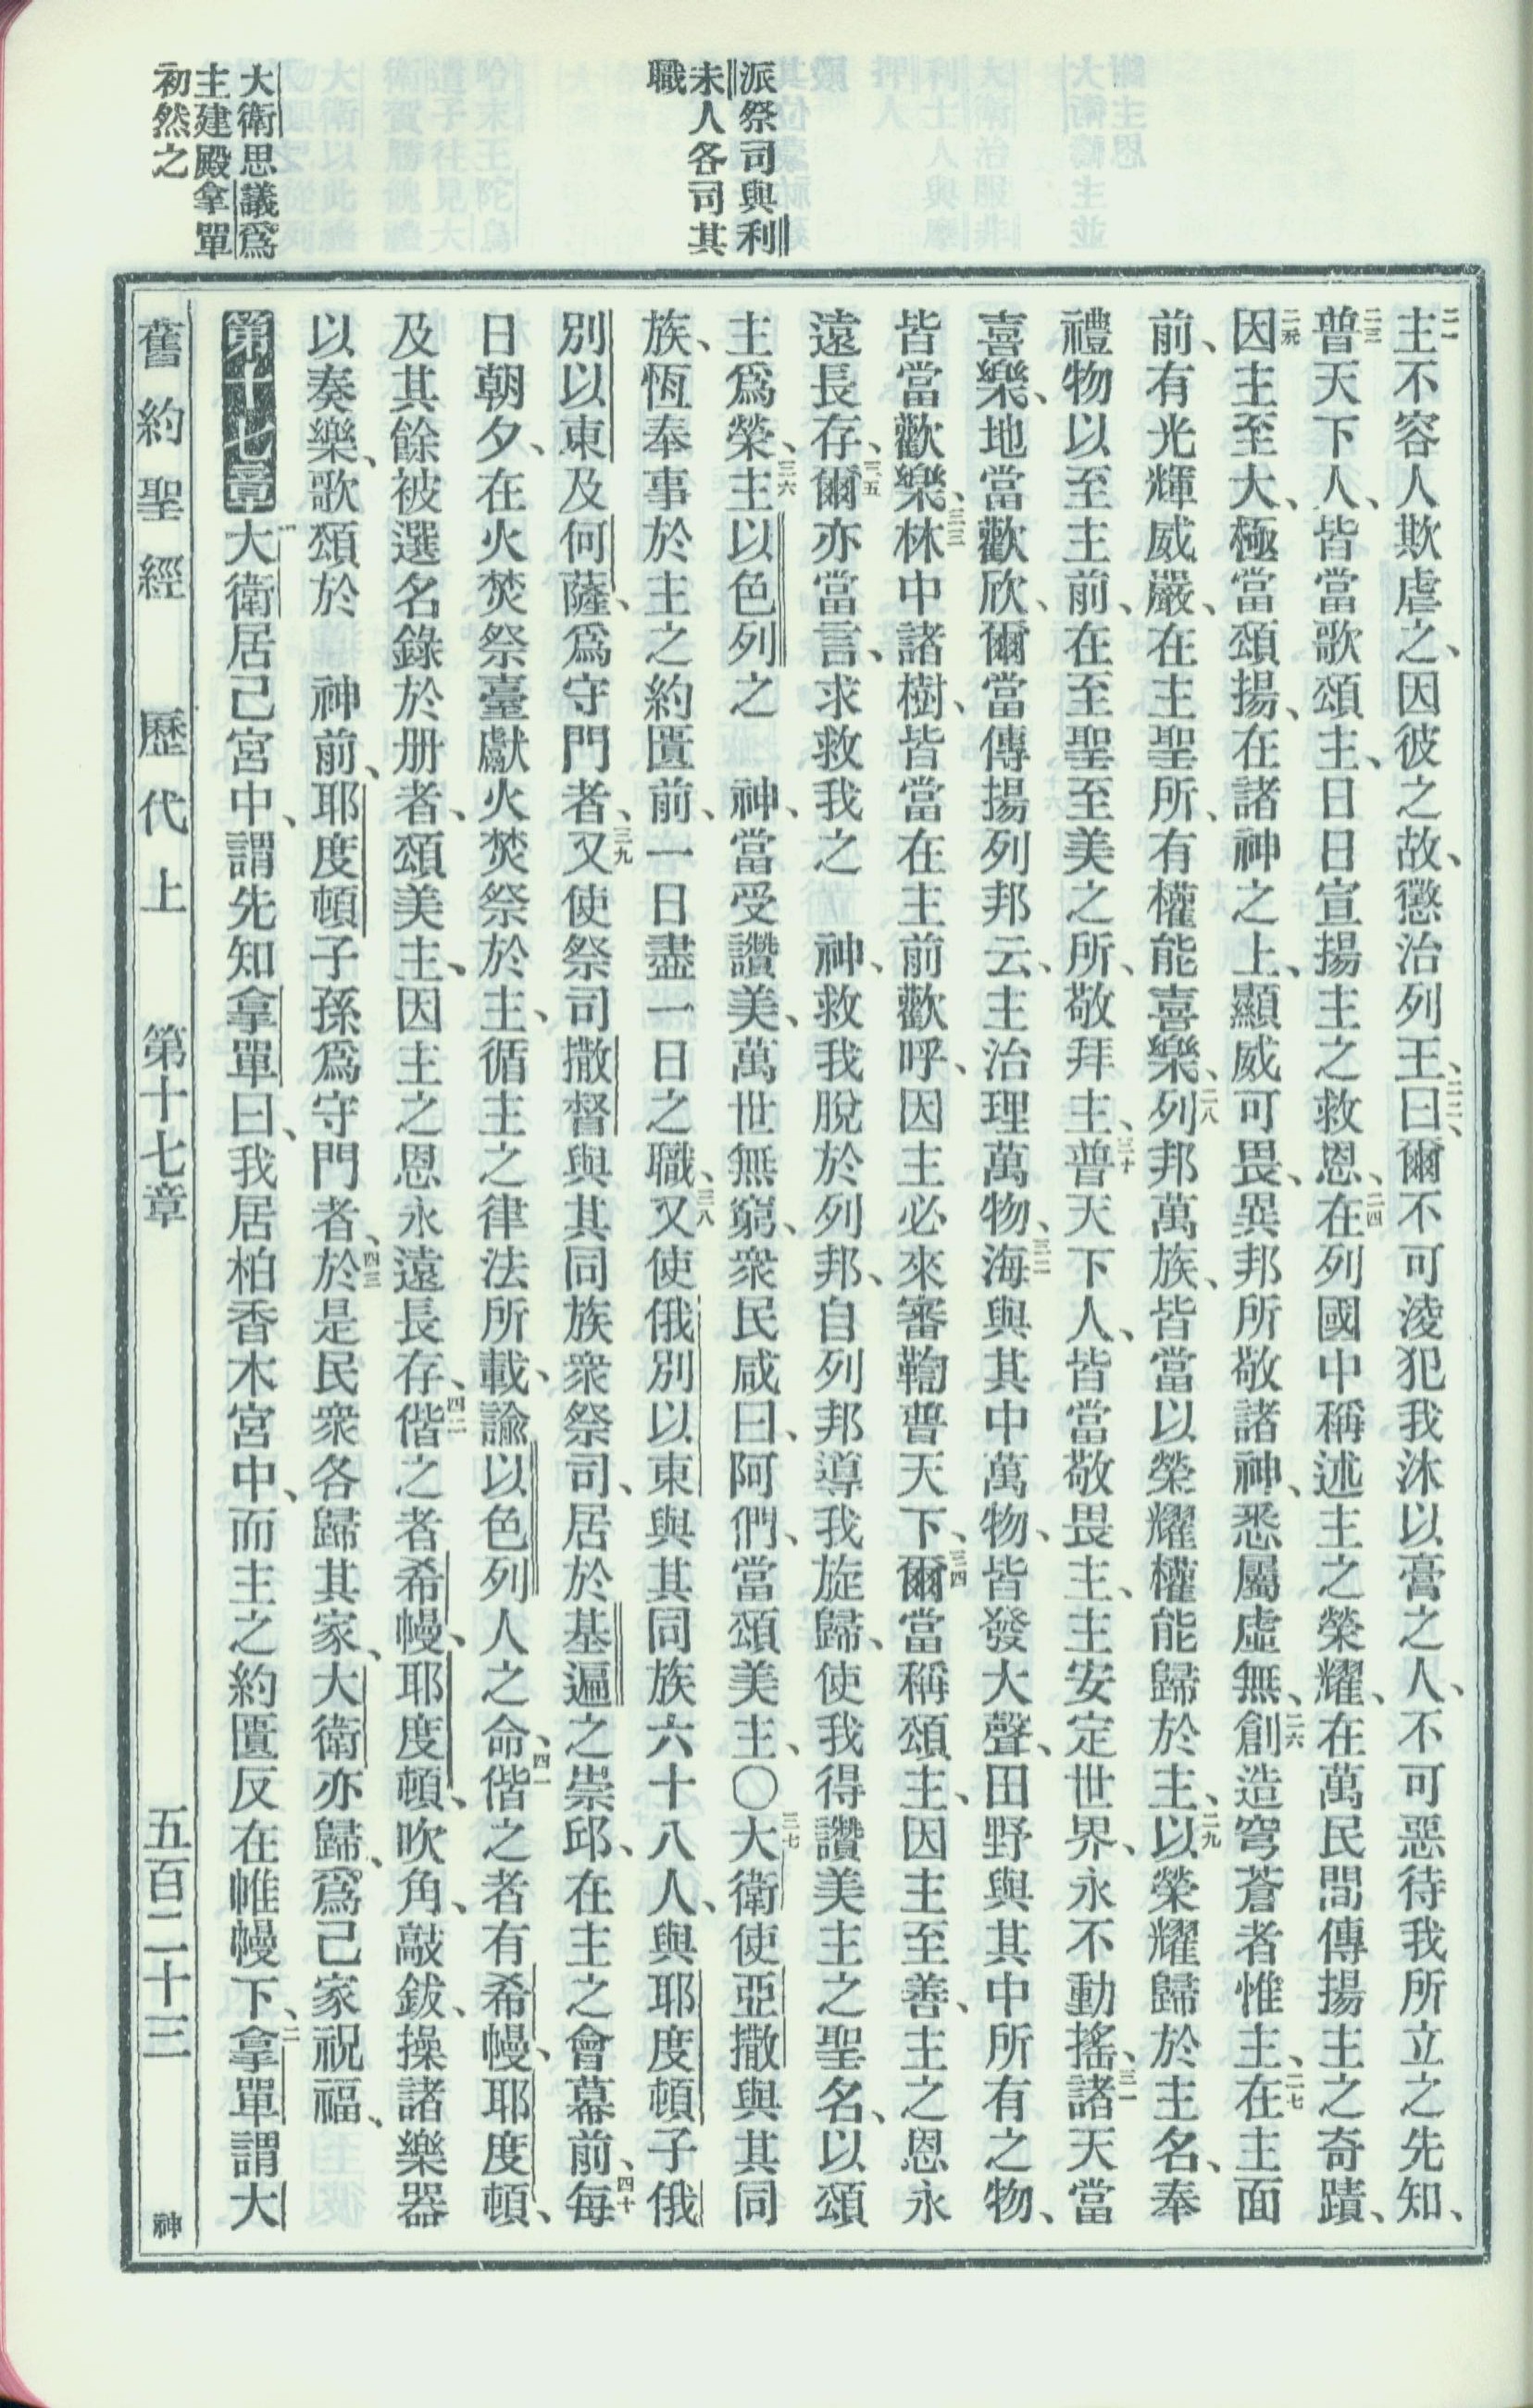 派祭司與利
未人各司其
職
大衛思議爲
主建殿拿單
初然之
二一主不容人欺虐之、因彼之故、懲治列王、二二曰、爾不可淩犯我沐以膏之人、不可惡待我所立之先知、
二三普天下人、皆當歌頌主、日日宣揚主之救恩、二四在列國中稱述主之榮耀、在萬民間傳揚主之奇蹟、
二五因主至大、極當頌揚、在諸神之上、顯威可畏、異邦所敬諸神、悉屬虛無、二六創造穹蒼者惟主、二七在主面
前、有光輝威嚴、在主聖所、有權能喜樂、二八列邦萬族、皆當以榮耀權能歸於主、二九以榮耀歸於主名、奉
禮物以至主前、在至聖至美之所、敬拜主、三十普天下人、皆當敬畏主、主安定世界、永不動搖、三一諸天當
喜樂、地當歡欣、爾當傳揚列邦云、主治理萬物、三二海與其中萬物、皆發大聲、田野與其中所有之物、
皆當歡樂、三三林中諸樹、皆當在主前歡呼、因主必來審鞫普天下、三四爾當稱頌主、因主至善、主之恩永
遠長存、三五爾亦當言、求救我之 神、救我脫於列邦、自列邦導我旋歸、使我得讚美主之聖名、以頌
主爲榮、三六主以色列之 神、當受讚美、萬世無窮、衆民咸曰、阿們、當頌美主、○三七大衛使亞撒與其同
族、恆奉事於主之約匱前、一日盡一日之職、三八又使俄別以東與其同族六十八人、與耶度頓子俄
別以東及何薩、爲守門者、三九又使祭司撒督與其同族衆祭司、居於基遍之崇邱、在主之會幕前、四十每
日朝夕、在火焚祭臺獻火焚祭於主、循主之律法所載、諭以色列人之命、四一偕之者有希幔、耶度頓、
及其餘被選名錄於册者、頌美主、因主之恩永遠長存、四二偕之者希幔、耶度頓、吹角、敲鈸、操諸樂器
以奏樂、歌頌於 神前、耶度頓子孫爲守門者、四三於是民衆各歸其家、大衛亦歸、爲己家祝福、
第十七章 一大衛居己宮中、謂先知拿單曰、我居柏香木宮中、而主之約匱反在帷幔下、二拿單謂大
舊約聖經 歷代上 第十七章 五百二十三 神